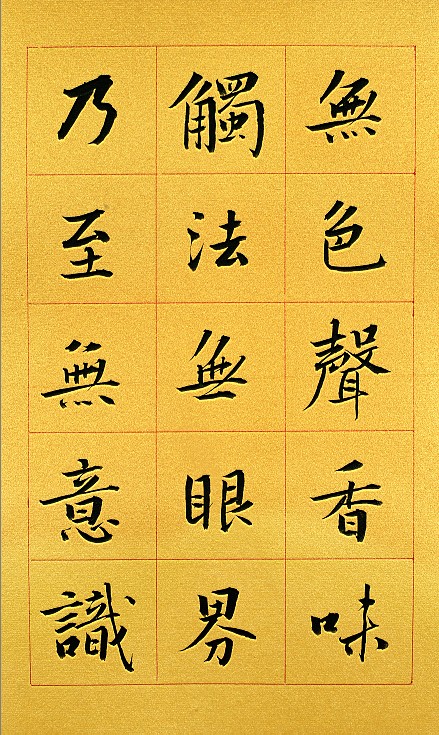 無色聲香味
觸法無眼界
乃至無意識